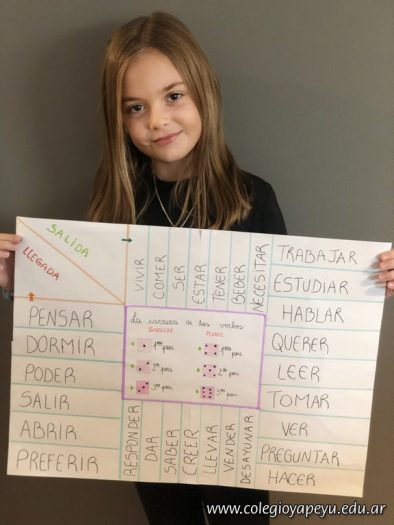 SALIDA
LLEGADA
VIVIR
COMER
SER
ESTAR
TENER
BEBER
NECESITAR
TRABAJAR
ESTUDIAR
HABLAR
QUERER
LEER
TOMAR
VER
PREGUNTAR
HACER
DESAYUNAR
VENDER
LLEVAR
CREER
SABER
DAR
RESPONDER
PREFERIR
ABRIR
SALIR
PODER
DORMIR
PENSAR
La carrera de los verbos
SINGULAR PLURAL
1ª pers 1ª pers
2ª pers 2ª pers
3ª pers 3ª pers
www.colegioyapeyu.edu.ar